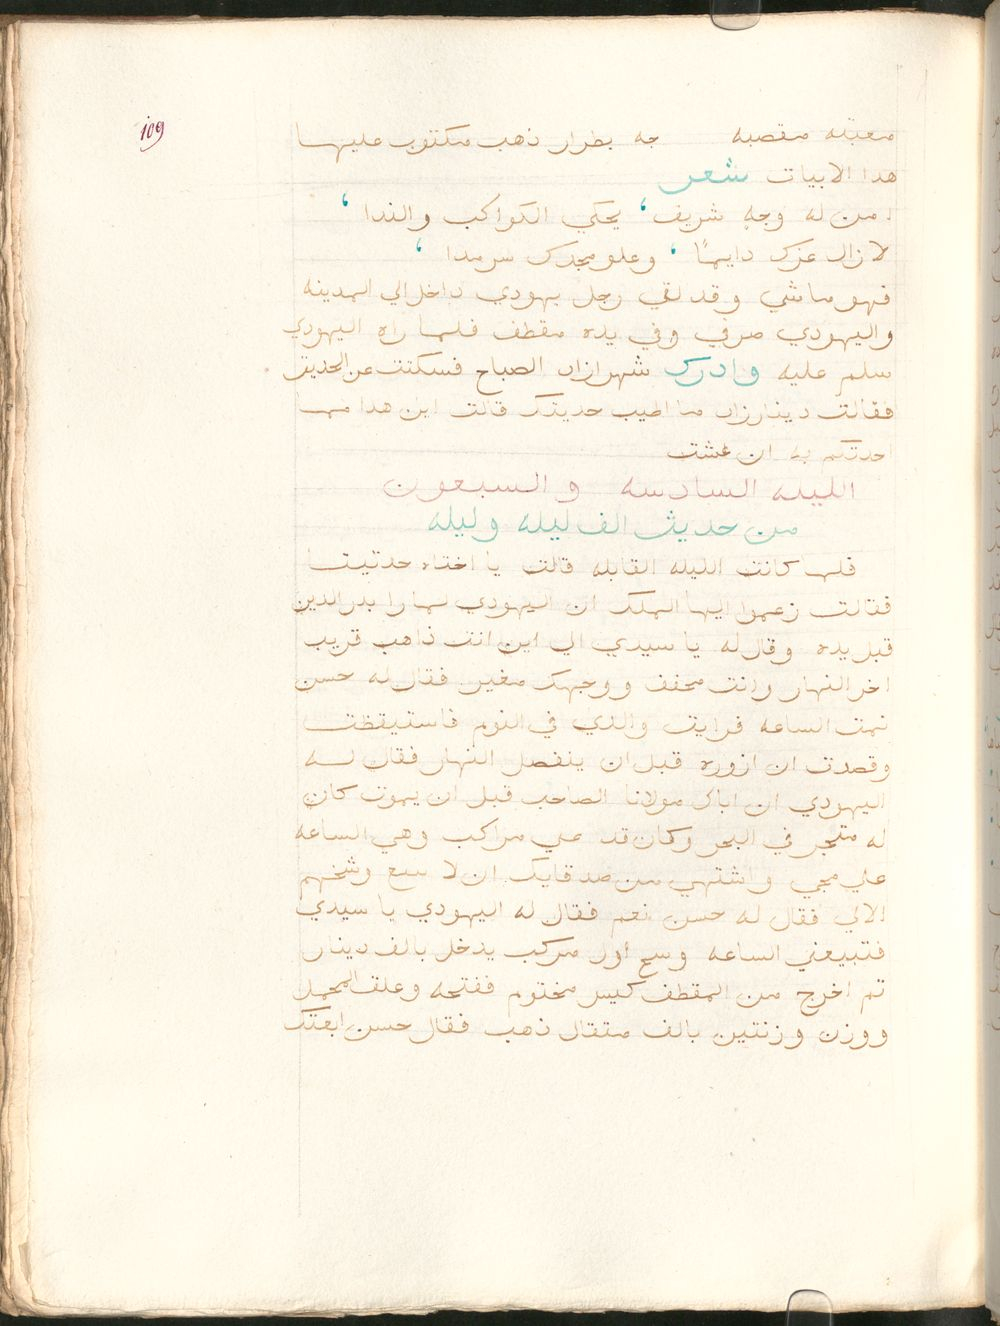 109
معبتله مقصبه جه بطرار ذهب مكتوب عليها
هدا الابيات شعر
امن له وجهٍ شريف ‘ يحكي الكواكب والندا ‘
لا زال عزك دايمًا ‘ وعلو مجدك سرمدا ‘
فهو ماشي وقد لقي رجل يهودي داخل الي المدينه
واليهودي صرفي وفي يده مقطف فلما راه اليهودي
سلم عليه وادرك شهرازاد الصباح فسكتت عن الحديث
فقالت دينارزاد ما اطيب حديتك قالت اين هدا مما
احدتكم به ان عشت
الليله السادسه والسبعون
من حديث الف ليله وليله
فلما كانت الليله القابله قالت يا اختاه حدتينا
فقالت زعموا ايها الملك ان اليهودي لما را بدر الدين
قبل يده وقال له يا سيدي الي اين انت ذاهب قريب
اخر النهار وانت مخفف ووجهك مغير فقال له حسن
نمت الساعه فرايت والدي في النوم فاستيقظت
وقصدت ان ازوره قبل ان ينفصل النهار فقال له
اليهودي ان اباك مولانا الصاحب قبل ان يموت كان
له متجر في البحر وكان قد علي مراكب وهي الساعه
علي مجي واشتهي من صدقايك ان لا سع وشخهم
الالي فقال له حسن نعم فقال له اليهودي يا سيدي
فتبيعني الساعه وسع اول مركب يدخل بالف دينار
تم اخرج من المقطف كيس مختوم ففتحه وعلق المحمل
ووزن وزنتين بالف متقال ذهب فقال حسن ابعتك